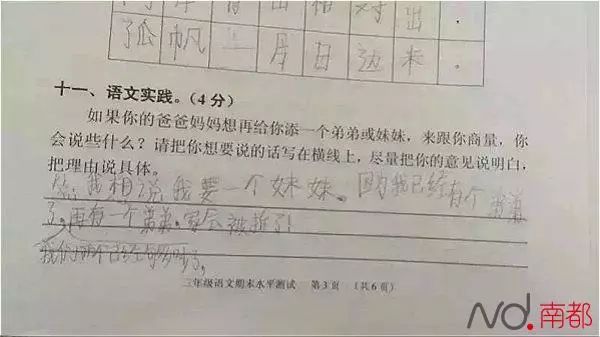 岸 青 山 相 对 出 ,
孤 帆 一 片 日 边 来 。
十一、语文实践。(4分)
如果你的爸爸妈妈想再给你添一个弟弟或妹妹，来跟你商量，你
会说些什么？请把你想要说的话写在横线上，尽量把你的意见说明白，
把理由说具体。
我想说我要一个妹妹。因为我已经有个弟弟
了。再有一个弟弟。家会被拆了!
我们两个已经够 了。
三年级语文期末水平测试 第3页 (共6页)
Nd.南都